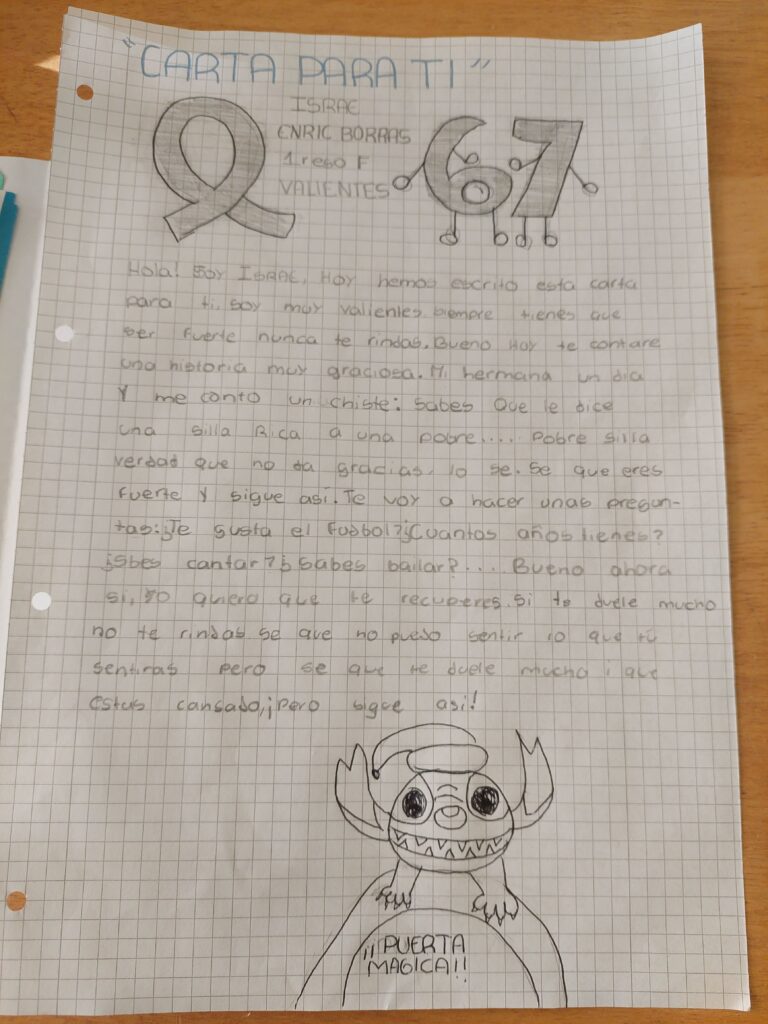 "CARTA PARA TI"
ISRAE
ENRIC BORRAS
1r eso F
VALIENTES
67
Hola! Soy ISRAE, Hoy hemos escrito esta carta
para ti, soy muy valientes. siempre tienes que
ser fuerte nunca te rindas. Bueno Hoy te contare
una historia muy graciosa. Mi hermana un dia
Y me conto un chiste: sabes que le dice
una silla Rica a una pobre.... Pobre silla
verdad que no da gracias. lo se. Se que eres
fuerte Y sigue asi. Te voy a hacer unas pregun-
tas: ¿Te gusta el Futbol? ¿Cuantos años tienes?
¿Sbes cantar? ¿Sabes bailar?... Bueno ahora
si, yo quiero que te recuperes. si te duele mucho
no te rindas se que no puedo sentir lo que tú
sentiras pero se que te duele mucho i que
estas cansado, ¡pero sigue asi!
¡¡PUERTA
MAGICA!!